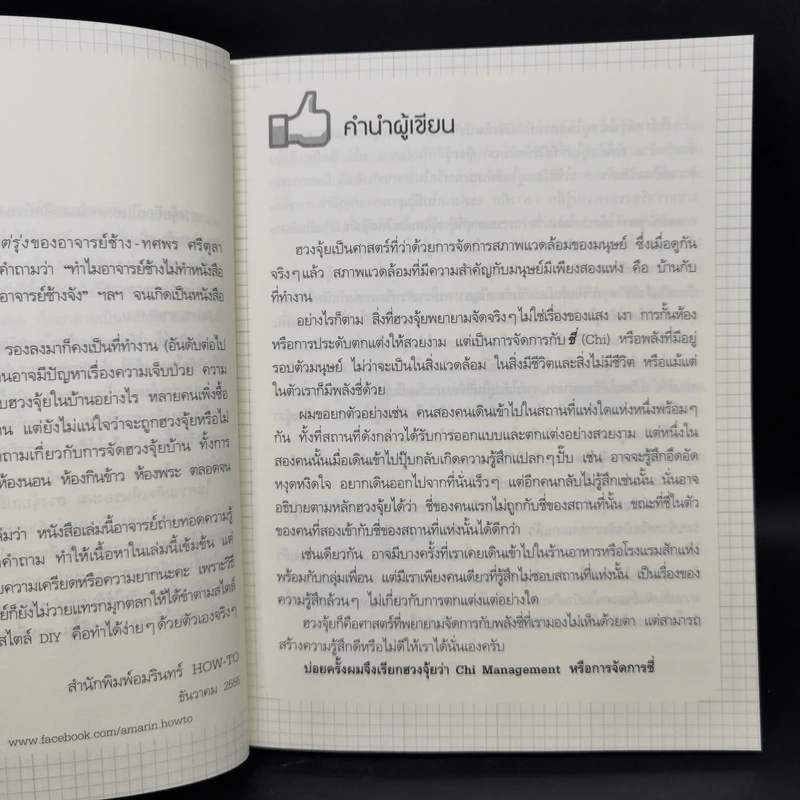 ต่รุ่งของอาจารย์ช้าง-ทศพร ศรีตุลา
คำถามว่า “ทำไมอาจารย์ช้างไม่ทำหนังสือ
อาจารย์ช้างจัง” ฯลฯ จนเกิดเป็นหนังสือ
รองลงมาก็คงเป็นที่ทำงาน (อันดับต่อไป
านอาจมีปัญหาเรื่องความเจ็บป่วย ความ
บฮวงจุ้ยในบ้านอย่างไร หลายคนเพิ่งซื้อ
าน แต่ยังไม่แน่ใจว่าจะถูกฮวงจุ้ยหรือไม่
ถามเกี่ยวกับการจัดฮวงจุ้ยบ้าน ทั้งการ
ห้องนอน ห้องกินข้าว ห้องพระ ตลอดจน
ล่มว่า หนังสือเล่มนี้อาจารย์ถ่ายทอดความรู้
คำถาม ทำให้เนื้อหาในเล่มนี้เข้มข้น แต่
ยความเครียดหรือความยากนะคะ เพราะวิธี
ย์ก็ยังไม่วายแทรกมุกตลกให้ได้ขำตามสไตล์
สไตล์ DIY คือทำได้ง่ายๆ ด้วยตัวเองจริงๆ
สำนักพิมพ์อมรินทร์ HOW-TO
ธันวาคม 2555
www.facebook.com/amarin.howto
คำนำผู้เขียน
ฮวงจุ้ยเป็นศาสตร์ที่ว่าด้วยการจัดการสภาพแวดล้อมของมนุษย์ ซึ่งเมื่อดูกัน
จริงๆ แล้ว สภาพแวดล้อมที่มีความสำคัญกับมนุษย์มีเพียงสองแห่ง คือ บ้านกับ
ที่ทำงาน
อย่างไรก็ตาม สิ่งที่ฮวงจุ้ยพยายามจัดจริงๆ ไม่ใช่เรื่องของแสง เงา การกั้นห้อง
หรือการประดับตกแต่งให้สวยงาม แต่เป็นการจัดการกับ ชี่ (Chi) หรือพลังที่มีอยู่
รอบตัวมนุษย์ ไม่ว่าจะเป็นในสิ่งแวดล้อม ในสิ่งมีชีวิตและสิ่งไม่มีชีวิต หรือแม้แต่
ในตัวเราก็มีพลังชี่ด้วย
ผมขอยกตัวอย่างเช่น คนสองคนเดินเข้าไปในสถานที่แห่งใดแห่งหนึ่งพร้อมๆ
กัน ทั้งที่สถานที่ดังกล่าวได้รับการออกแบบและตกแต่งอย่างสวยงาม แต่หนึ่งใน
สองคนนั้นเมื่อเดินเข้าไปปุ๊บกลับเกิดความรู้สึกแปลกๆ ปั๊บ เช่น อาจจะรู้สึกอึดอัด
หงุดหงิดใจ อยากเดินออกไปจากที่นั่นเร็วๆ แต่อีกคนกลับไม่รู้สึกเช่นนั้น นั่นอาจ
อธิบายตามหลักฮวงจุ้ยได้ว่า ชี่ของคนแรกไม่ถูกกับชี่ของสถานที่นั้น ขณะที่ชี่ในตัว
ของคนที่สองเข้ากับชี่ของสถานที่แห่งนั้นได้ดีกว่า
เช่นเดียวกัน อาจมีบางครั้งที่เราเคยเดินเข้าไปในร้านอาหารหรือโรงแรมสักแห่ง
พร้อมกับกลุ่มเพื่อน แต่มีเราเพียงคนเดียวที่รู้สึกไม่ชอบสถานที่แห่งนั้น เป็นเรื่องของ
ความรู้สึกล้วนๆ ไม่เกี่ยวกับการตกแต่งแต่อย่างใด
ฮวงจุ้ยก็คือศาสตร์ที่พยายามจัดการกับพลังชี่ที่เรามองไม่เห็นด้วยตา แต่สามารถ
สร้างความรู้สึกดีหรือไม่ดีให้เราได้นั่นเองครับ
บ่อยครั้งผมจึงเรียกฮวงจุ้ยว่า Chi Management หรือการจัดการชี่